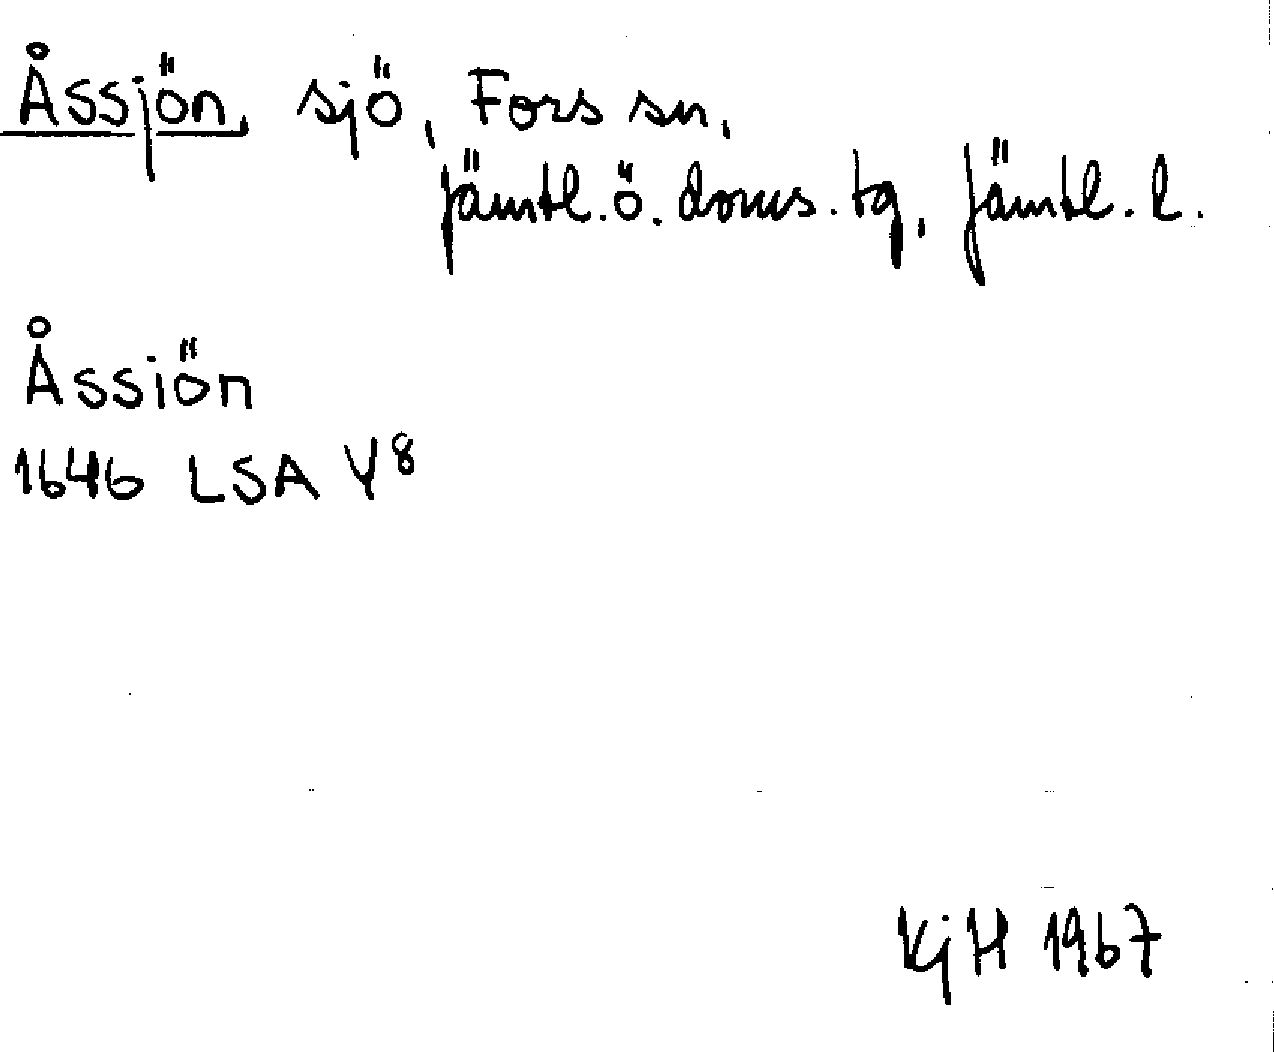 Åssjön, sjö, Fors sn,
Jämtl. ö. doms. tg, Jämtl. l.
Åssiön
1646 LSA Y8
KjH 1967